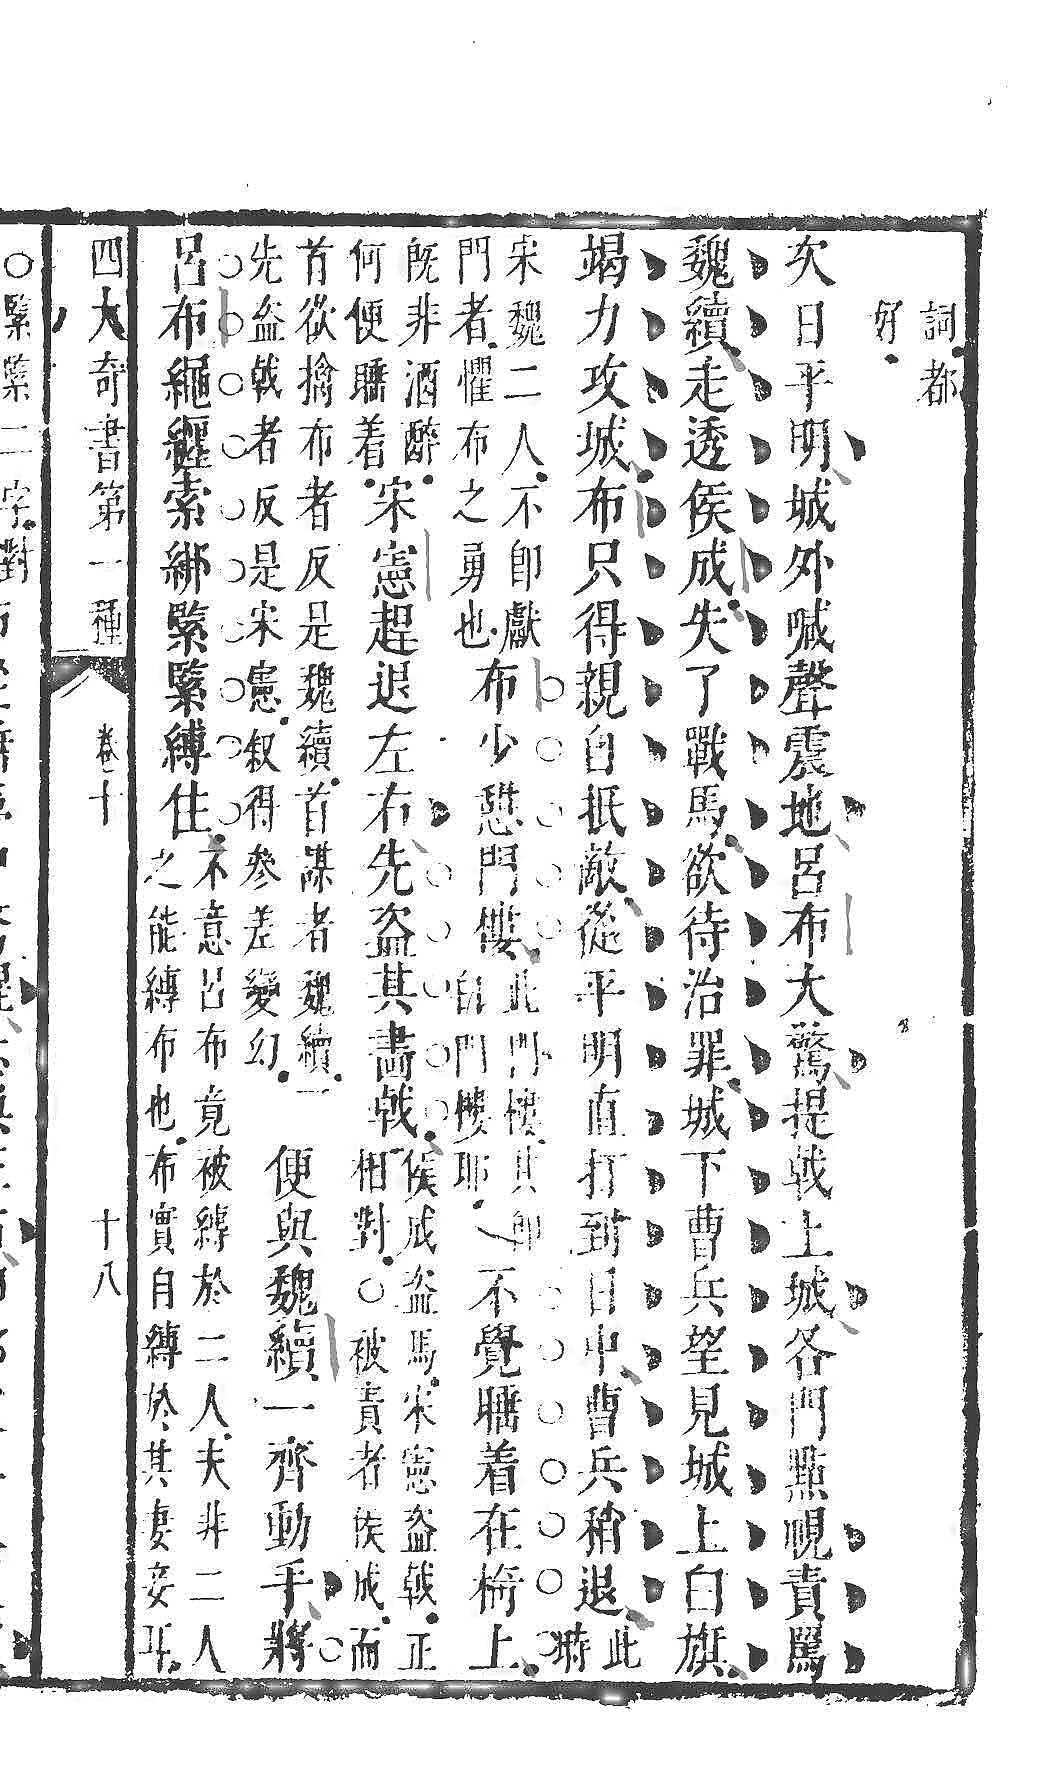 詞都
好
次日平明城外喊聲震地呂布大驚提戟上城各門點視責罵
魏續走透侯成失了戰馬欲待治罪城下曹兵望見城上白旗
竭力攻城布只得親自抵敵從平明直打到日中曹兵稍退此
時
宋魏二人不卽獻
門者懼布之勇也布少憩門樓此門樓其卽
白門樓耶不覺睡着在椅上
旣非酒醉
何便睡着宋憲趕退左右先盗其畫戟侯成盗馬宋憲盗戟正
相對○被責者侯成而
首欲擒布者反是魏續首謀者魏續一
先盗戟者反是宋憲叙得參差變幻便與魏續一齊動手將
呂布繩纒索綁緊緊縛住不意呂布竟被縛於二人夫非二人
之能縛布也布實自縛於其妻妾耳
四大奇書第一種
卷十
十八
○緊緊二字對